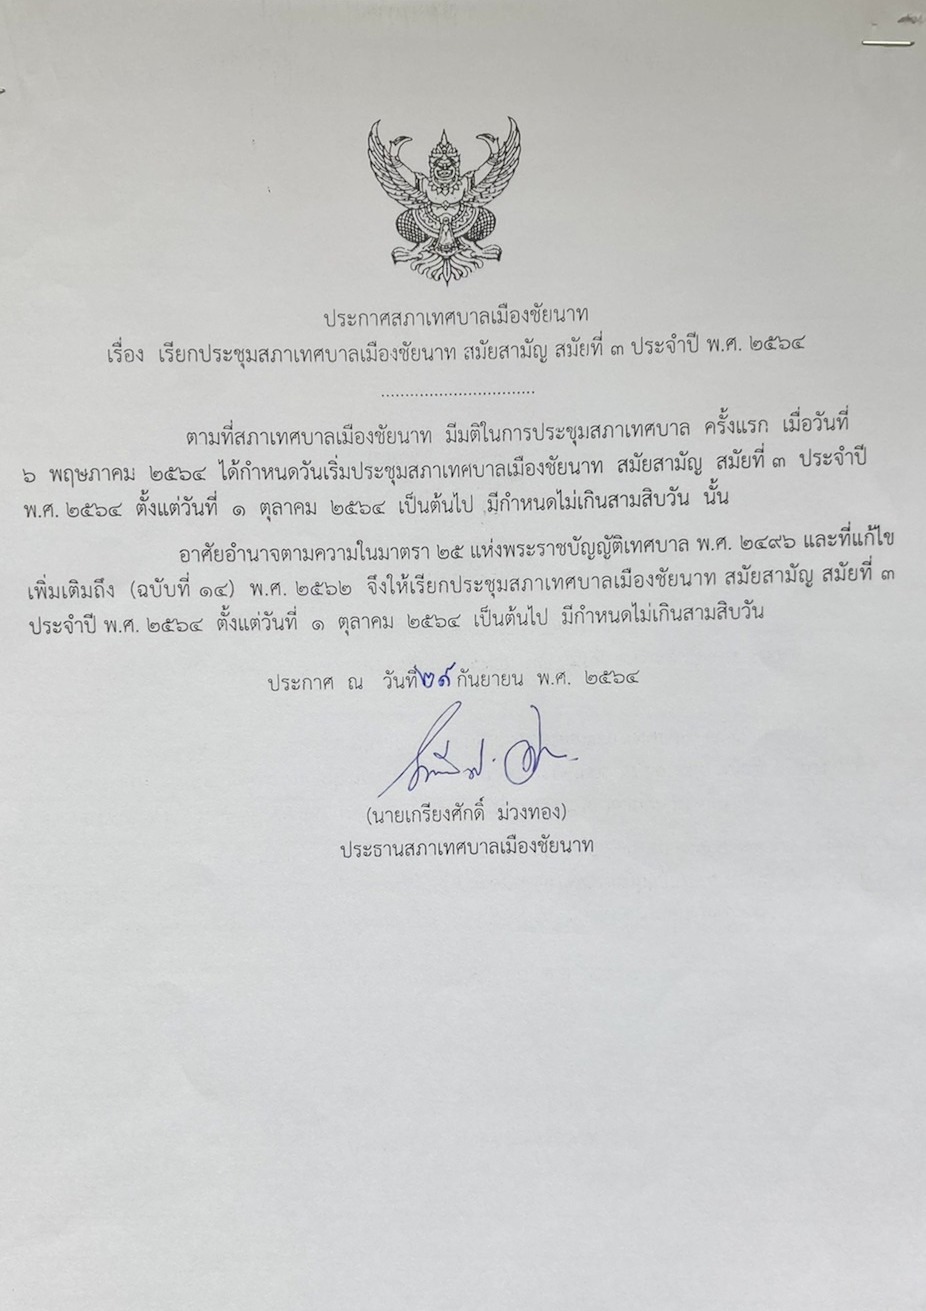 ประกาศสภาเทศบาลเมืองชัยนาท
เรื่อง เรียกประชุมสภาเทศบาลเมืองชัยนาท สมัยสามัญ สมัยที่ ๓ ประจำปี พ.ศ. ๒๕๖๔
................................
ตามที่สภาเทศบาลเมืองชัยนาท มีมติในการประชุมสภาเทศบาล ครั้งแรก เมื่อวันที่
๖ พฤษภาคม ๒๕๖๔ ได้กำหนดวันเริ่มประชุมสภาเทศบาลเมืองชัยนาท สมัยสามัญ สมัยที่ ๓ ประจำปี
พ.ศ. ๒๕๖๔ ตั้งแต่วันที่ ๑ ตุลาคม ๒๕๖๔ เป็นต้นไป มีกำหนดไม่เกินสามสิบวัน นั้น
อาศัยอำนาจตามความในมาตรา ๒๕ แห่งพระราชบัญญัติเทศบาล พ.ศ. ๒๔๙๖ และที่แก้ไข
เพิ่มเติมถึง (ฉบับที่ ๑๔) พ.ศ. ๒๕๖๒ จึงให้เรียกประชุมสภาเทศบาลเมืองชัยนาท สมัยสามัญ สมัยที่ ๓
ประจำปี พ.ศ. ๒๕๖๔ ตั้งแต่วันที่ ๑ ตุลาคม ๒๕๖๔ เป็นต้นไป มีกำหนดไม่เกินสามสิบวัน
ประกาศ ณ วันที่ กันยายน พ.ศ. ๒๕๖๔
(นายเกรียงศักดิ์ ม่วงทอง)
ประธานสภาเทศบาลเมืองชัยนาท